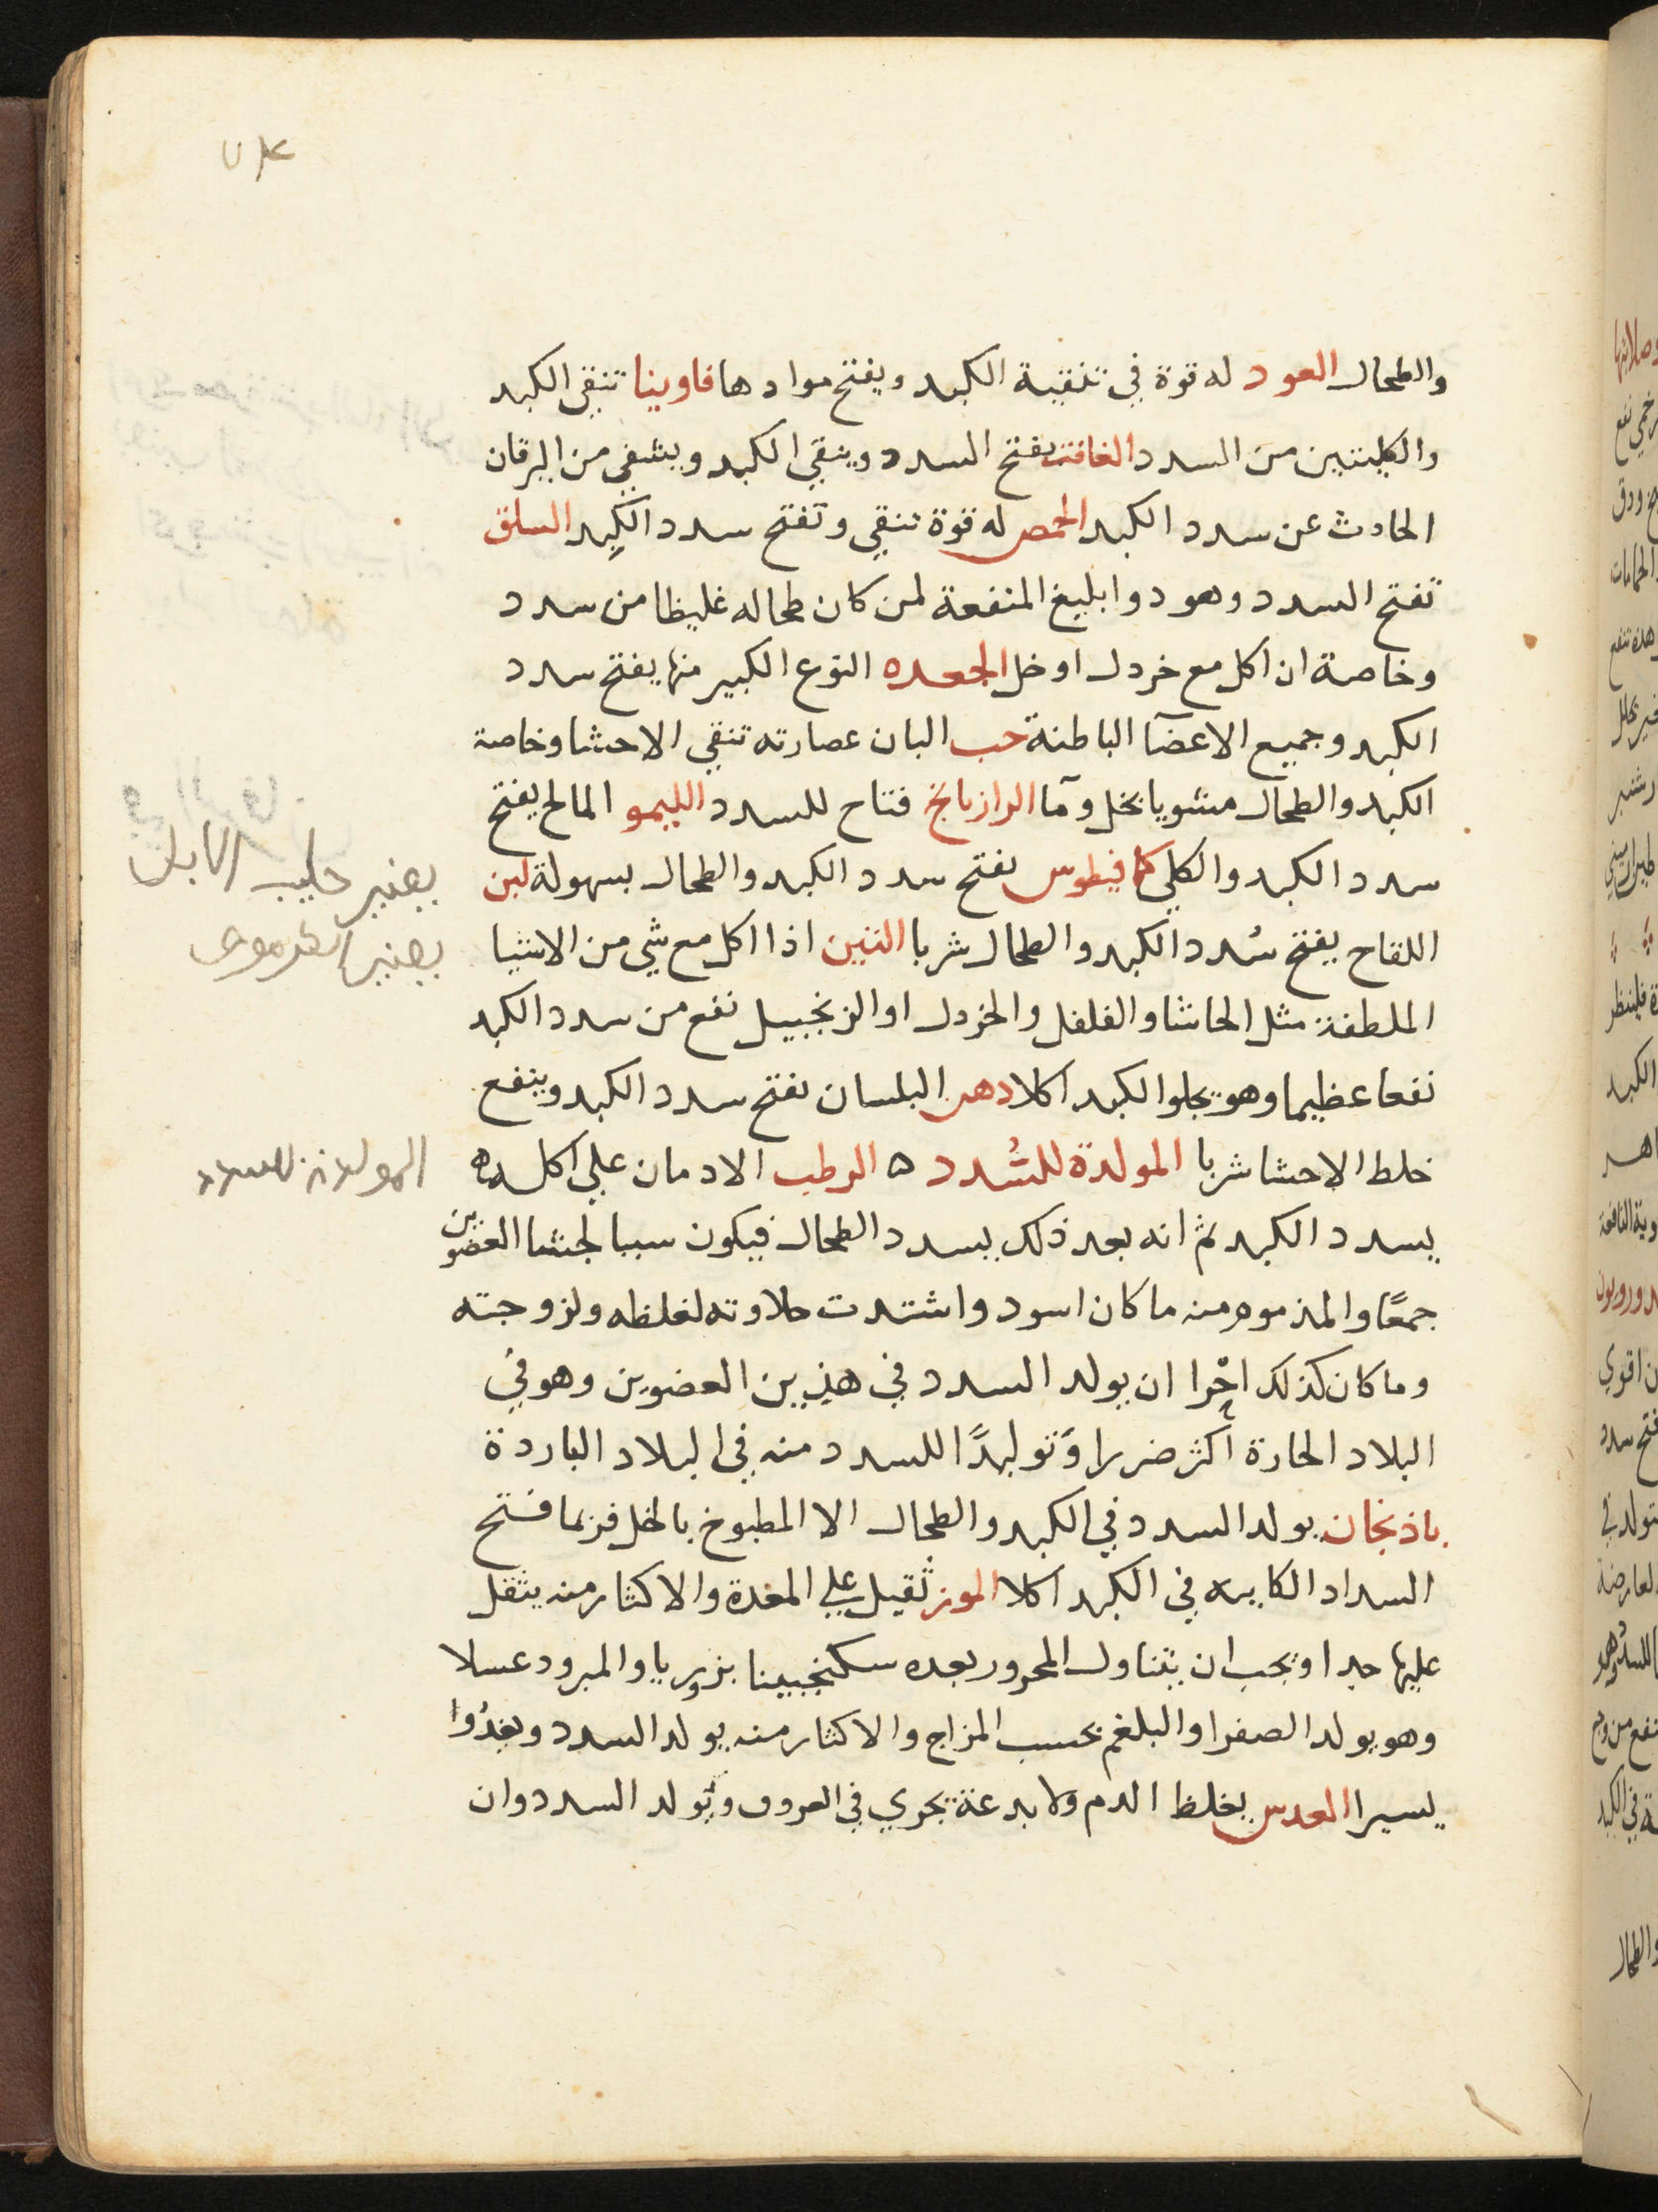 والطحال العود له قوة في تنقية الكبد ويفتح موادها فاوينا تنقي الكبد
والكليتين من السدد الغافت يفتح السدد وينقي الكبد ويشفي من اليرقان
الحادث عن سدد الكبد الحمص له قوة تنقي وتفتح سدد الكبد السلق
تفتح السدد وهو دوا بليغ المنفعة لمن كان طحاله غليظا من سدد
وخاصة ان اكل مع خردل او خل الجعده النوع الكبير منها يفتح سدد
الكبد وجميع الاعضآ الباطنة حب البان عصارته تنقي الاحشا وخاصة
الكبد والطحال مشويا بخل ومآ الرازيانخ فتاح للسدد الليمو المالح يفتح
سدد الكبد والكلي كمافيطوس يفتح سدد الكبد والطحال بسهولة لبن
اللقاح يفتح سُدد الكبد والطحال شربا التين اذا اكل مع شي من الاشيا
الملطفة مثل الحاشا والفلفل والخردل او الزنجبيل نفع من سدد الكبد
نفعا عظيما وهو يجلوا الكبد اكلا دهن البلسان يفتح سدد الكبد وينفع
خلط الاحشا شربا المولدة للسُدد ه الرطب الادمان علي اكله
يسدد الكبد ثم انه بعد ذلك يسدد الطحال فيكون سببا لجشا العضوين
جمعًا والمذموم منه ما كان اسود واشتدت حلاوته لغلظه ولزوجته
وما كان كذلك احْرا ان يولد السدد في هذين العضوين وهو في
البلاد الحارة اكثر ضررا وَتوليدًا للسدد منه في البلاد الباردة
باذنجان يولد السدد في الكبد والطحال الا المطبوخ بالخل فربما فتح
السداد الكاينه في الكبد اكلا الموز ثقيل علي المعدة والاكثار منه يثقل
عليها جدا ويجب ان يتناول المحرور بعده سكنجبينا بزوريا والمبرود عسلا
وهو يولد الصفرا والبلغم بحسب المزاج والاكثار منه يولد السدد ويغذُوا
يسيرا العدس يغلظ الدم ولا يدعه يجري في العروق ويُولد السدد وان
يعني حليب الابل
المولدة للسدد